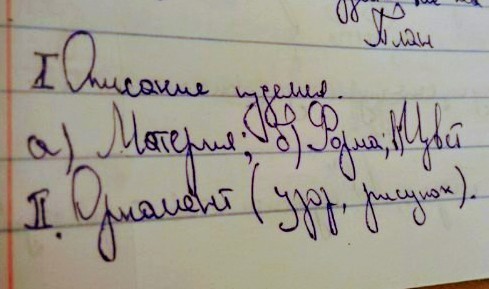 План
I Описание изделия.
а) Материя; б) Форма; в) Цвет
II. Орнамент (узор, рисунок).